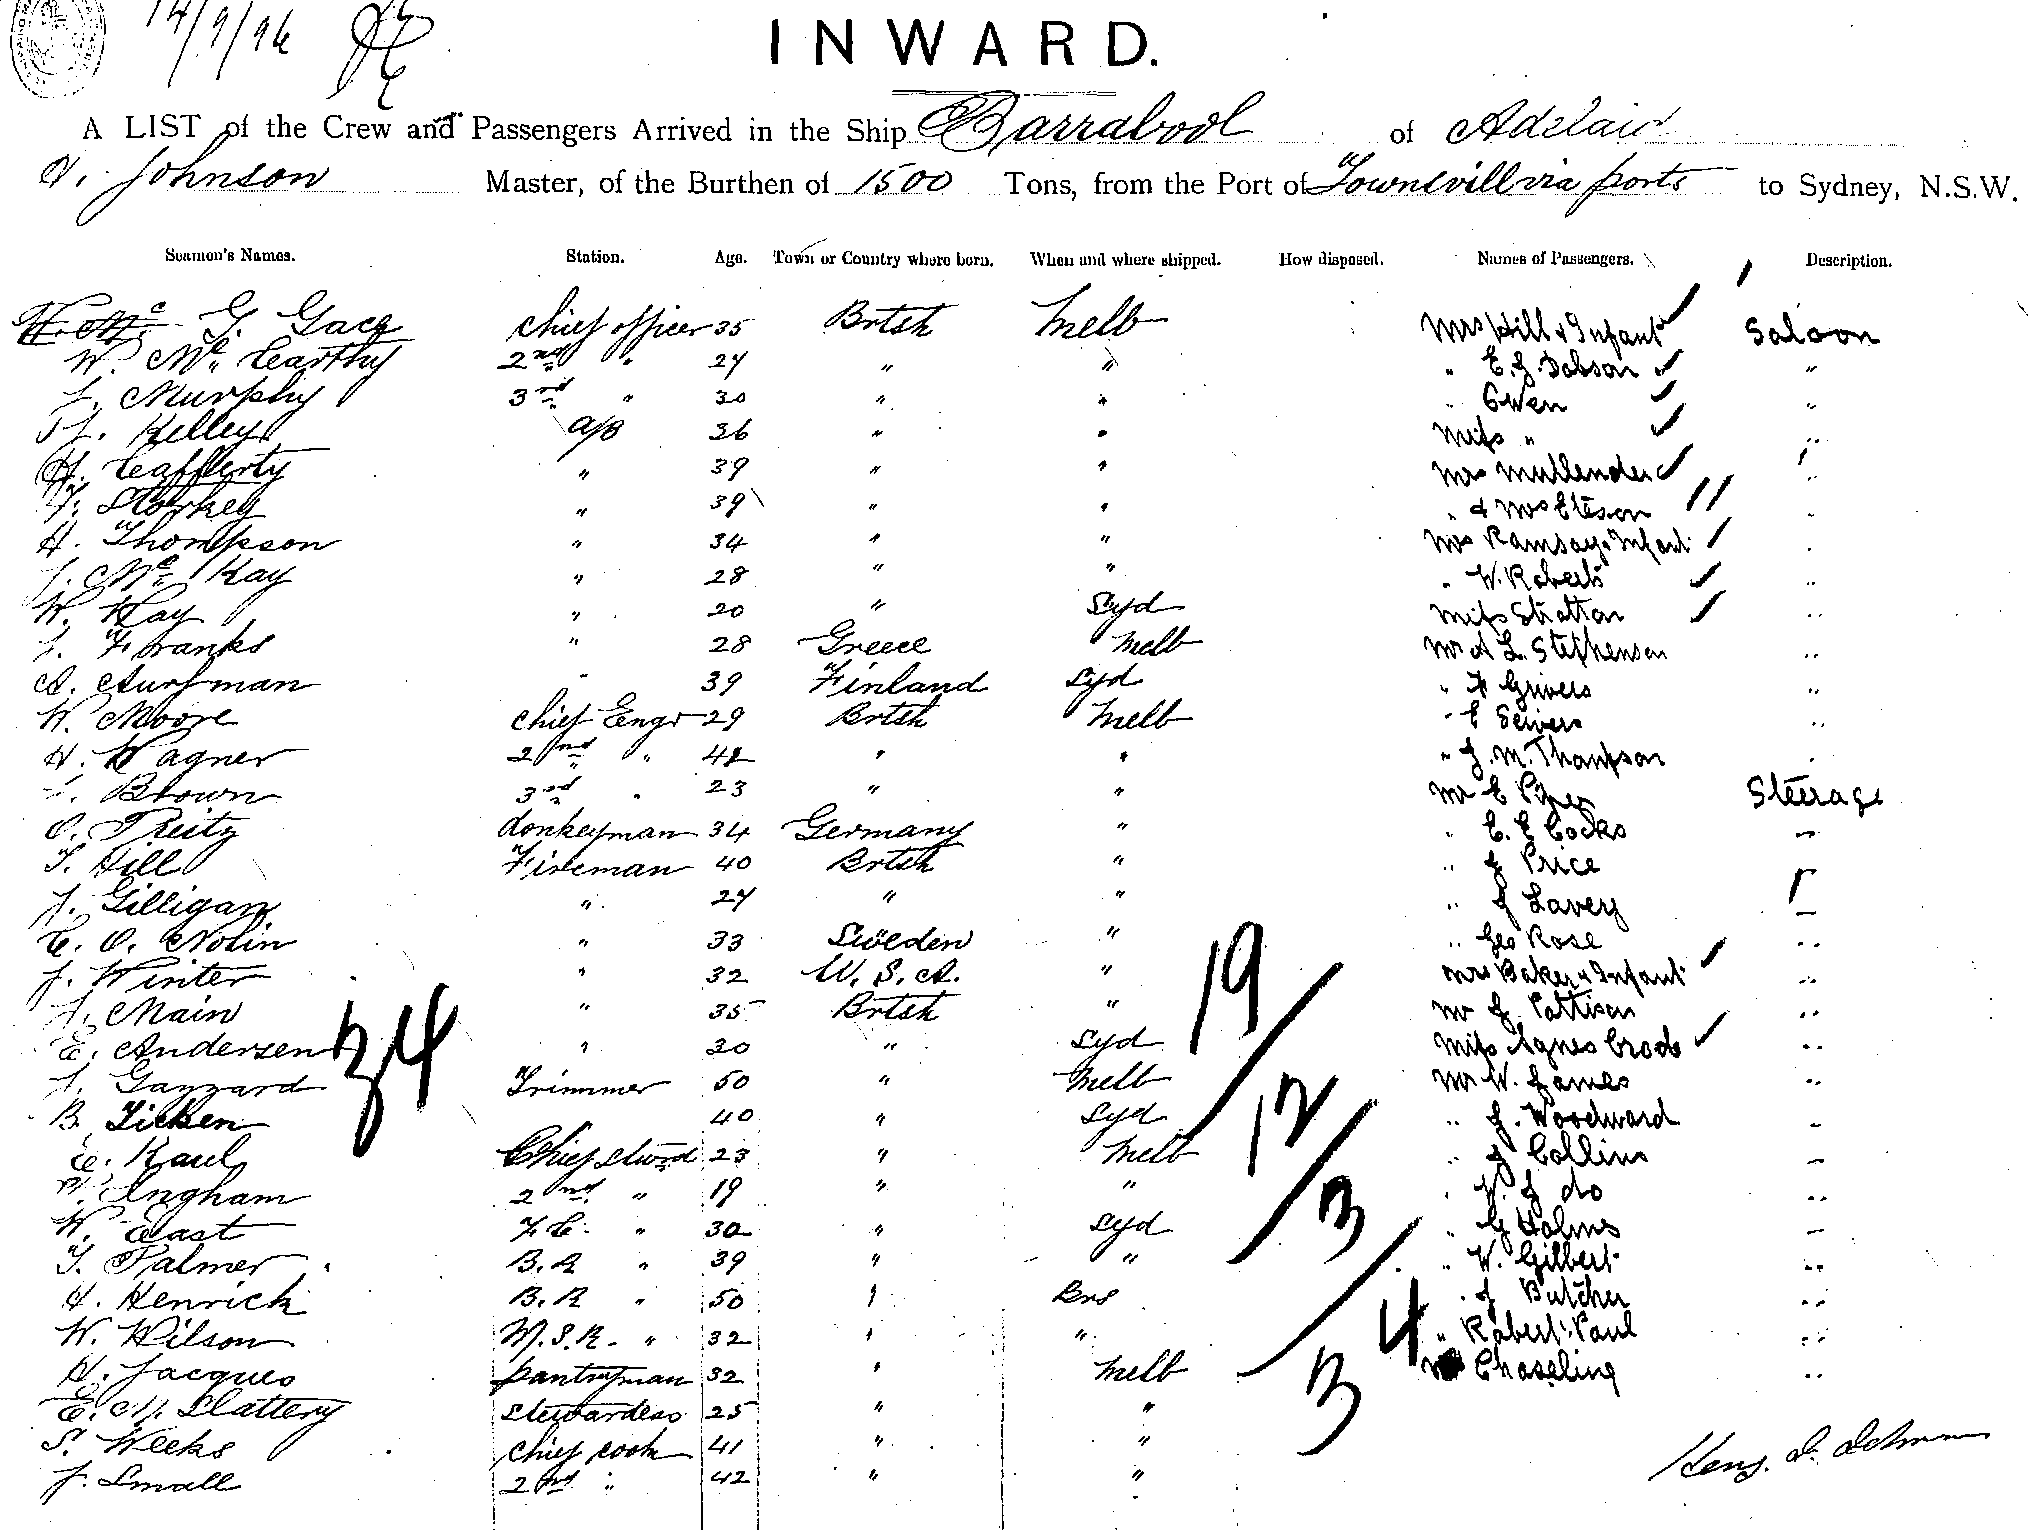 14/9/96
INWARD.
A LIST of the Crew and Passengers Arrived in the Ship Barrabool of Adelaid
Johnson Master, of the Burthen of 1500 Tons, from the Port of Townsvill via ports to Sydney, N.S.W.
Seamen's Names. Station. Age. Town or Country where born. When and where shipped. How disposed. Names of Passengers. Description.
G. chief officer 35 Brtsh Melb Mrs Hill & Infant Saloon
W. Mc Carthy 2nd " 27 " " " E. J. Dobson "
Murphy 3rd " 30 " " " Owen "
Kelley a/B 36 " " Miss " "
Cafferty " 39 " " Mrs Mullender "
Storkey " 39 " " " & Mrs "
H. Thompson " 34 " " Mrs Ramsay & Infant "
Mc Kay " 28 " " " W. Roberts "
W. Hay " 20 " Syd Miss Stratton "
Franks " 28 Greece Melb Mr A L. Stephenson "
A. " 39 Finland Syd " "
W. Moore chief Engr 29 Brtsh Melb " E "
H. Wagner 2nd " 42 " " " J. M. Thompson "
Brown 3rd " 23 " " Mr E Steerage
O. donkeyman 34 Germany " " E. E Cocks "
T. Hill Fireman 40 Brtsh " " J Price
J. Gilligan " 27 " " " J Lavery "
C. O. Nolin " 33 Sweden " " Geo Rose "
J. Winter " 32 U. S. A. " Mrs Baker & Infant "
Main " 35 Brtsh " Mr J. Pattison "
E. Andersen " 30 " Syd Miss Agnes "
Gazzard Trimmer 50 " Melb Mr W. James "
B. 40 " Syd " J. Woodward "
E. Kaul Chief Stwrd 23 " Melb " J Collins "
Ingham 2nd " 19 " " " do "
W. East F C. " 30 " Syd " G Holms "
T. Palmer B. R " 39 " " " W. Gilbert "
H. Henrick B. R " 50 " Brs " J Butcher "
W. Wilson M. S. R. " 32 " " " Robert Paul "
H. Jacques pantryman 32 " Melb Chaseling "
E. M. Slattery Stewardess 25 " "
S. Weeks chief cook 41 " "
J. Small 2nd " 42 " "
34
19
12
3
34